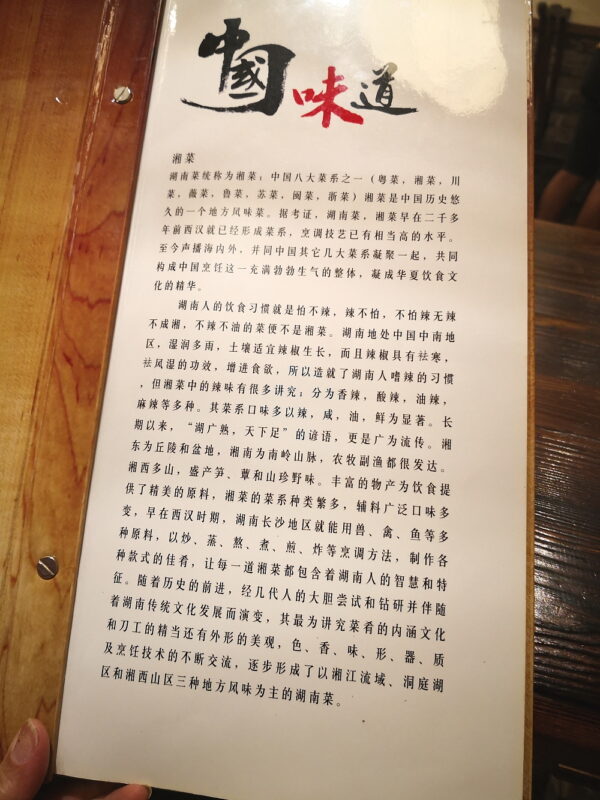 中國味道
湘菜
湖南菜统称为湘菜；中国八大菜系之一（粤菜，湘菜，川
菜，薇菜，鲁菜，苏菜，闽菜，浙菜）湘菜是中国历史悠
久的一个地方风味菜。据考证，湖南菜，湘菜早在二千多
年前西汉就已经形成菜系，烹调技艺已有相当高的水平。
至今声播海内外，并同中国其它几大菜系凝聚一起，共同
构成中国烹饪这一充满勃勃生气的整体，凝成华夏饮食文
化的精华。
湖南人的饮食习惯就是怕不辣，辣不怕，不怕辣无辣
不成湘，不辣不油的菜便不是湘菜。湖南地处中国中南地
区，湿润多雨，土壤适宜辣椒生长，而且辣椒具有祛寒，
祛风湿的功效，增进食欲，所以造就了湖南人嗜辣的习惯
，但湘菜中的辣味有很多讲究：分为香辣，酸辣，油辣，
麻辣等多种。其菜系口味多以辣，咸，油，鲜为显著。长
期以来，“湖广熟，天下足”的谚语，更是广为流传。湘
东为丘陵和盆地，湘南为南岭山脉，农牧副渔都很发达。
湘西多山，盛产笋、蕈和山珍野味。丰富的物产为饮食提
供了精美的原料，湘菜的菜系种类繁多，辅料广泛口味多
变，早在西汉时期，湖南长沙地区就能用兽、禽、鱼等多
种原料，以炒、蒸、熬、煮、煎、炸等烹调方法，制作各
种款式的佳肴，让每一道湘菜都包含着湖南人的智慧和特
征。随着历史的前进，经几代人的大胆尝试和钻研并伴随
着湖南传统文化发展而演变，其最为讲究菜肴的内涵文化
和刀工的精当还有外形的美观，色、香、味、形、器、质
及烹饪技术的不断交流，逐步形成了以湘江流域、洞庭湖
区和湘西山区三种地方风味为主的湖南菜。